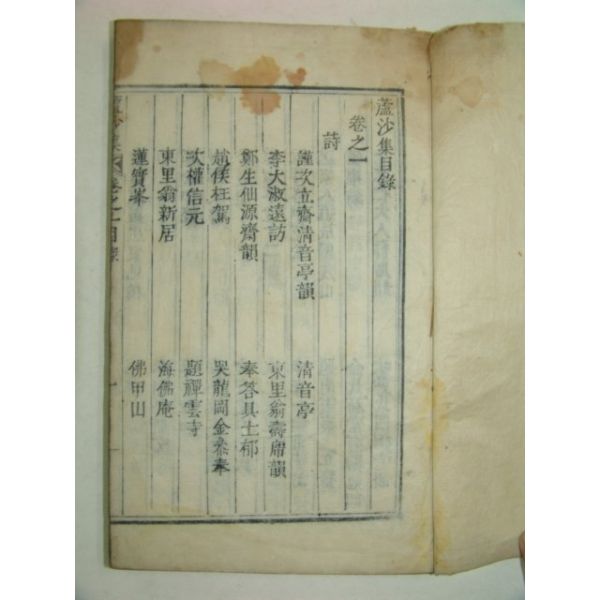 蘆沙集目錄
卷之一
詩
謹次立齋清音亭韻
清音亭
李大淑遠訪
東里翁壽席韻
鄭生仙源齋韻
奉答具士郁
趙侯枉駕
哭龍岡金
次權信元
題禪雲寺
東里翁新居
海佛庵
蓮實峯
佛甲山
卷之一目錄
一